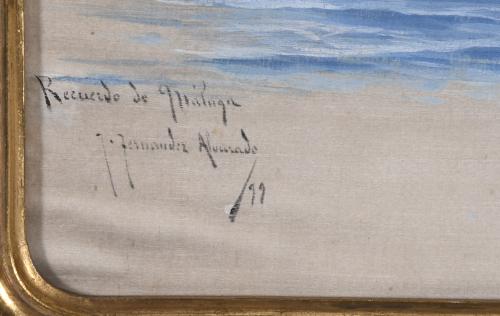 Recuerdo de Málaga
J. Fernandez Alvarado
/99